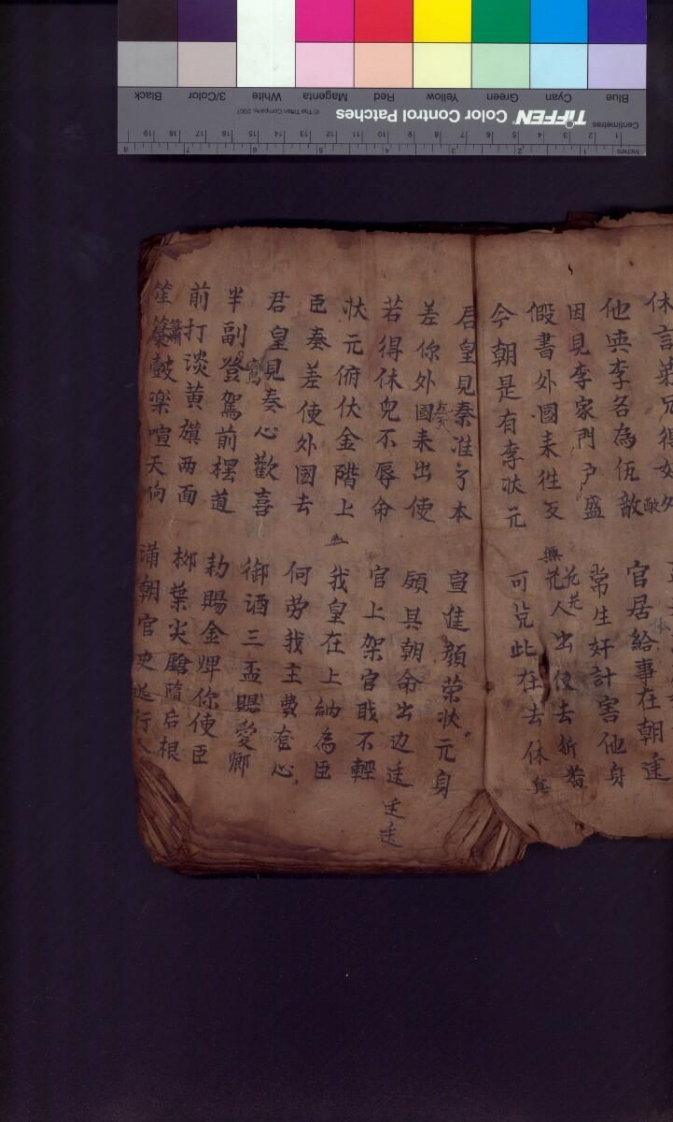 休言弟兄得
他與李名為伍敵 官居給事在朝廷
因見李家門户盛 常生奸計害他身
假書外國来徃反 無人出使去折若
今朝是有李状元 可㒵此在去休
君皇見秦准了本 宣進顔荣状元身
差你外國来出使 頋其朝命出边廷 廷廷
若得休皃不辱命 官上架官戢不輕
状元俯伏金階上 我皇在上納為臣
臣奏差使外國去 何劳我主費套心
君皇見奏心歡喜 御酒三盃賜愛卿
半副登駕前擺道 勅賜金牌你使臣
前打淡黄旗两面 栁葉尖鎗隨后根
笙簧鼓楽喧天向 满朝官吏送行
Centimetres
Inches
TIFFEN Color Control Patches
© The Tiffen Company, 2007
Blue Cyan Green Yellow Red Magenta White 3/Color Black